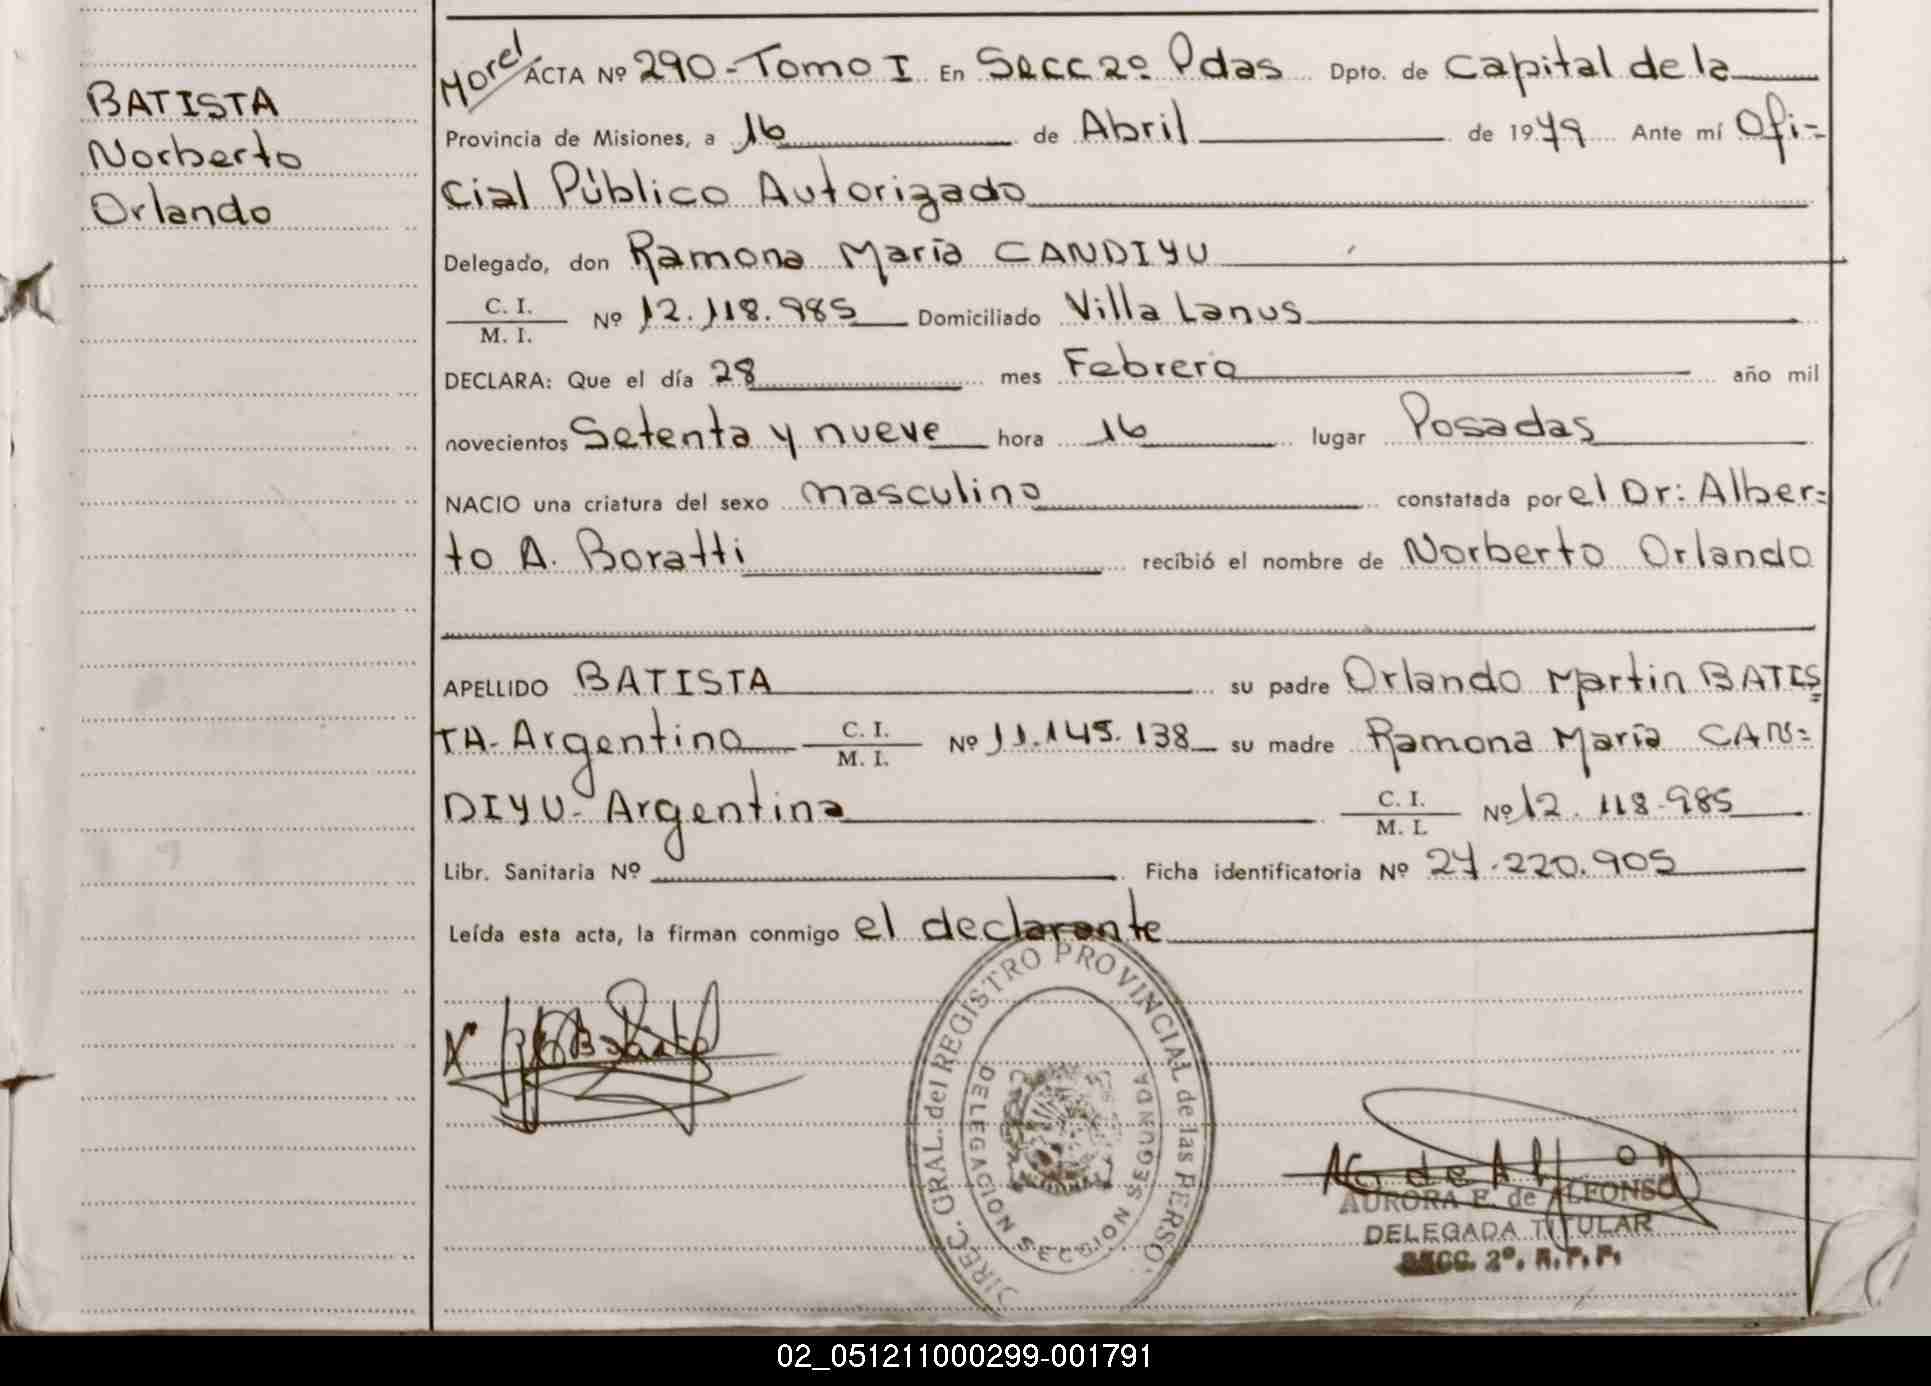 BATISTA
Norberto
Orlando
Morel
ACTA Nº 290-Tomo I En Secc 2º Pdas Dpto. de Capital de la
Provincia de Misiones, a 16 de Abril de 1979 Ante mí Ofi-
cial Público Autorizado
Delegado, don Ramona María CANDIYU
C. I.
M. I. Nº 12.118.985 Domiciliado Villa Lanus
DECLARA: Que el día 28 mes Febrero año mil
novecientos Setenta y nueve hora 16 lugar Posadas
NACIO una criatura del sexo masculino constatada por el Dr: Alber=
to A. Boratti recibió el nombre de Norberto Orlando
APELLIDO BATISTA su padre Orlando Martin BATIS
TA-Argentino C. I. M. I. Nº 11.145.138 su madre Ramona María CAN=
DIYU-Argentina C. I. M. I. Nº 12.118.985
Libr. Sanitaria Nº Ficha identificatoria Nº 27.220.905
Leída esta acta, la firman conmigo el declarante
DIREC. GRAL. del REGISTRO PROVINCIAL de las PERSO.
DELEGACION SECCION SEGUNDA
AURORA E. de ALFONSO
DELEGADA TITULAR
SECC. 2º. R. P. P.
02_051211000299-001791